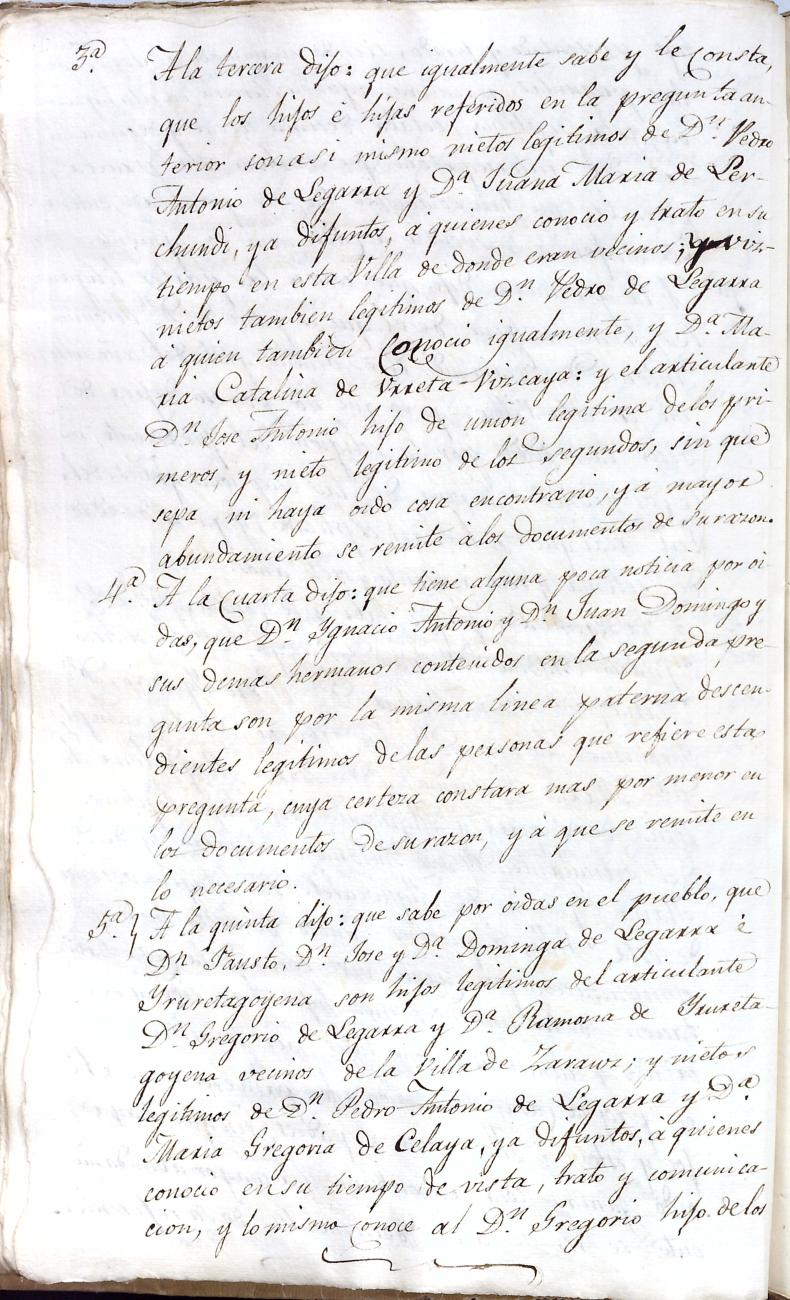 3ª. A la tercera dijo: que igualmente sabe y le consta,
que los hijos è hijas referidos en la pregunta an-
terior son asi mismo nietos legitimos de Dn. Pedro
Antonio de Legarra y Dª Juana Maria de Per-
chundi, ya difuntos, à quienes conocio y trato en su
tiempo en esta Villa de donde eran vecinos; y viz-
nietos tambien legitimos de Dn. Pedro de Legarra
à quien tambien conocio igualmente, y Dª. Ma-
ria Catalina de Urreta-Vizcaya: y el articulante
Dn. Jose Antonio hijo de union legitima de los pri-
meros, y nieto legitimo de los segundos, sin que
sepa, ni haya oido cosa en contrario, y à mayor
abundamiento se remite à los documentos de su razon.
4ª. A la Cuarta dijo: que tiene alguna poca noticia por oi-
das, que Dn. Ygnacio Antonio y Dn. Juan Domingo y
sus demas hermanos contenidos en la segunda pre-
gunta son por la misma linea paterna descen-
dientes legitimos de las personas que refiere esta
pregunta, cuya certeza constara mas por menor en
los documentos de su razon, y à que se remite en
lo necesario.
5ª. A la quinta dijo: que sabe por oidas en el pueblo, que
Dn. Fausto, Dn. Jose y Dª. Dominga de Legarra è
Yruretagoyena son hijos legitimos del articulante
Dn. Gregorio de Legarra y Dª Ramona de Yrureta-
goyena vecinos de la Villa de Zarauz; y nietos
legitimos de Dn. Pedro Antonio de Legarra y Dª.
Maria Gregoria de Celaya, ya difuntos, à quienes
conocio en su tiempo de vista, trato y comunica-
cion, y lo mismo conoce al Dn. Gregorio hijo de los